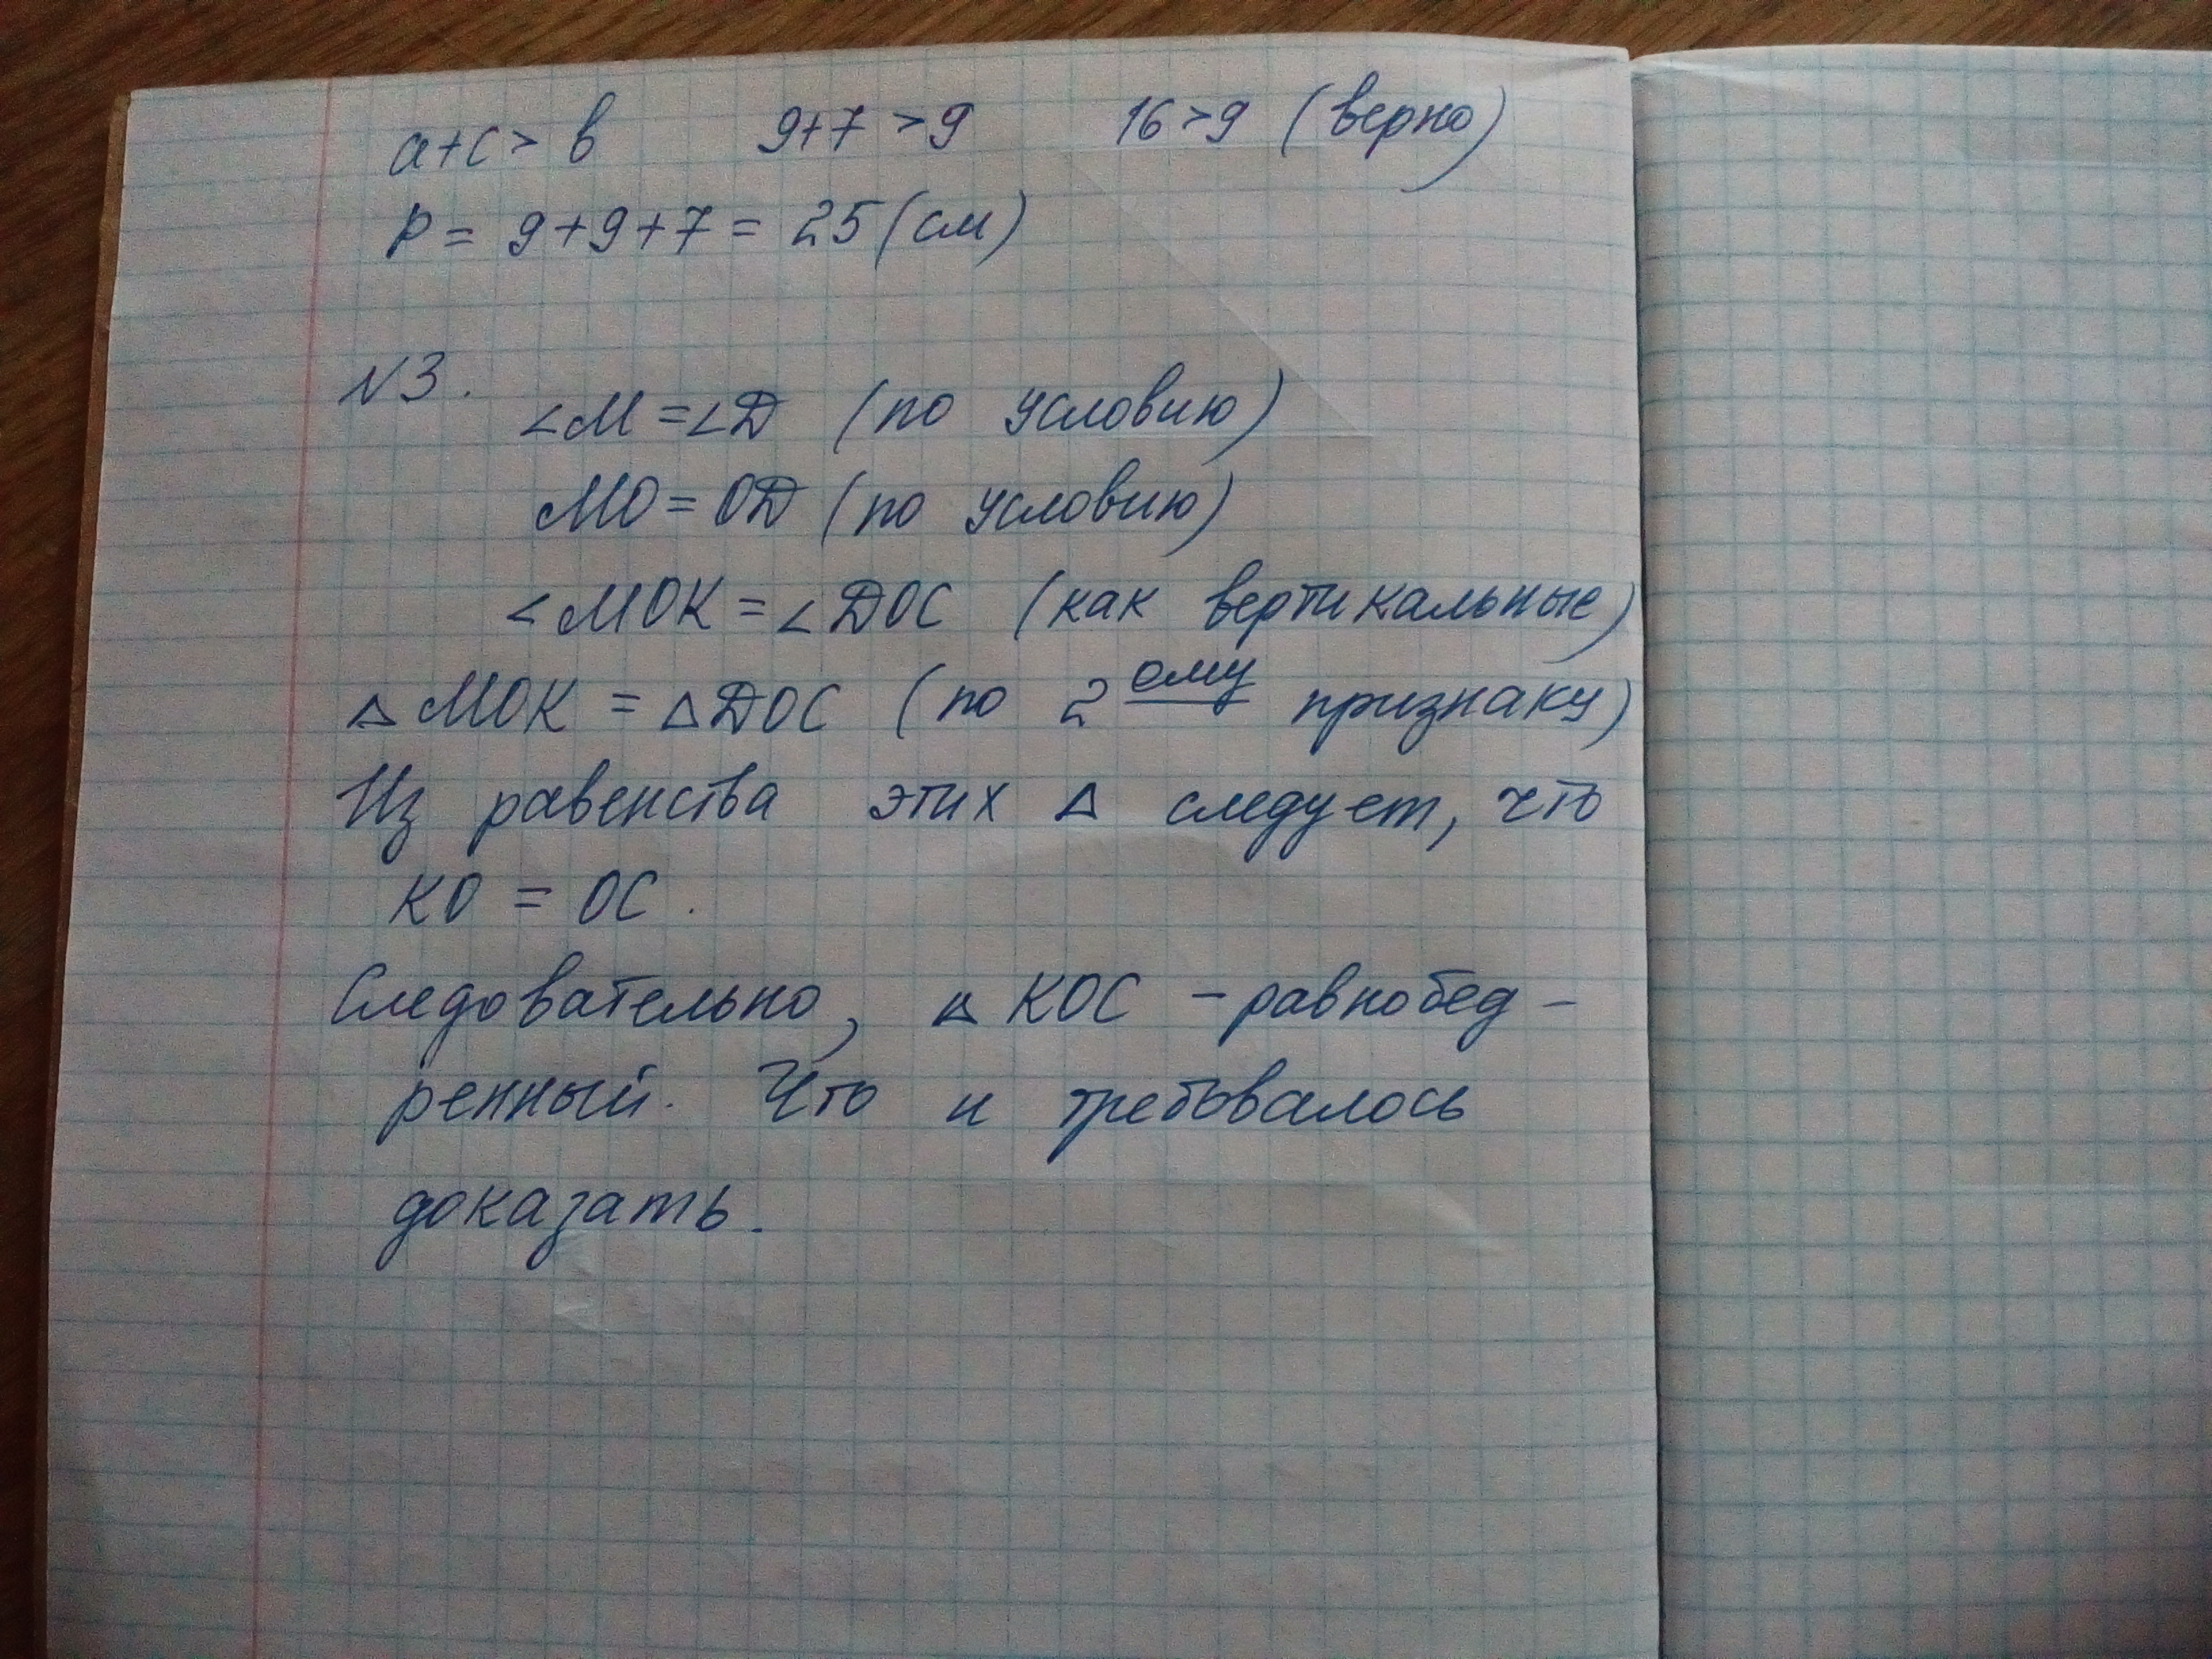 a+c > в 9+7 > 9 16 > 9 (верно)
P = 9+9+7 = 25 (см)
N3.
∠M = ∠D (по условию)
MO = OD (по условию)
∠MOK = ∠DOC (как вертикальные)
△MOK = △DOC (по 2ому признаку)
Из равенства этих △ следует, что
KO = OC.
Следовательно, △ KOC – равнобед-
ренный. Что и требовалось
доказать.